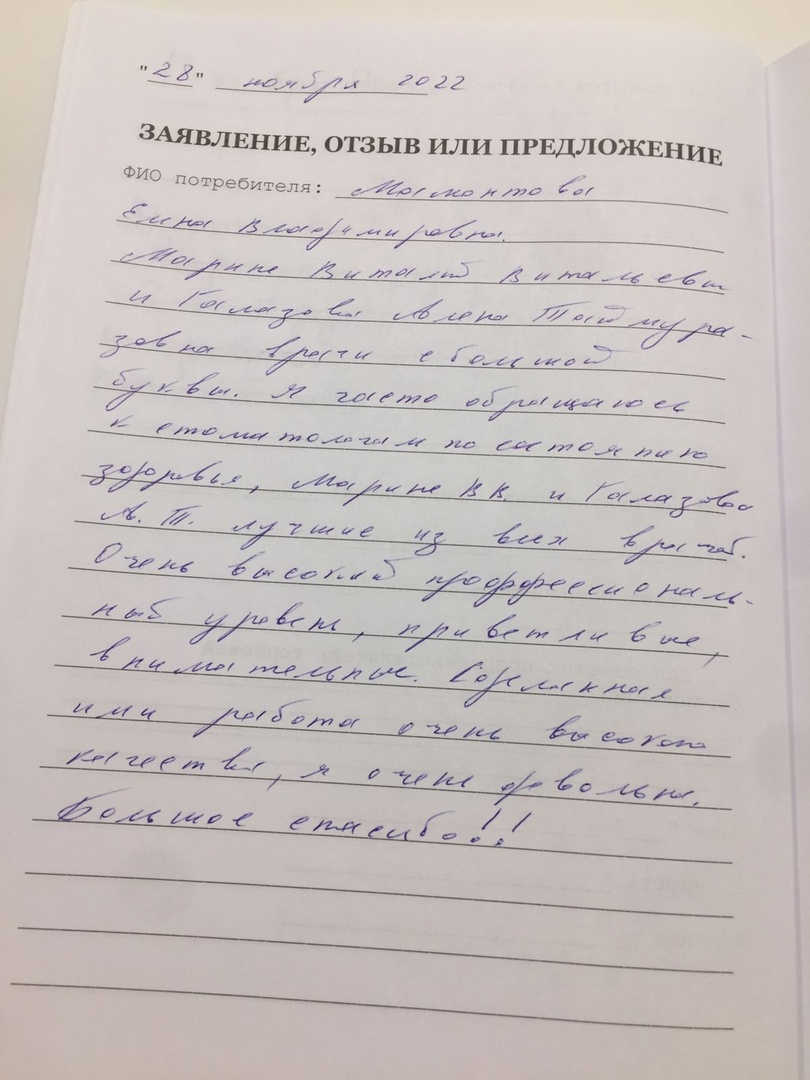 "28" ноября 2022
ЗАЯВЛЕНИЕ, ОТЗЫВ ИЛИ ПРЕДЛОЖЕНИЕ
ФИО потребителя: Мамонтова
Елена Владимировна.
Марине Виталий Витальевич
и Галазова Алена Таймура-
зовна врачи с большой
буквы. Я часто обращаюсь
к стоматологам по состоянию
здоровья, Марине В.В. и Галазова
А. Т. лучшие из всех врачей.
Очень высокий проффессиональ-
ный уровень, приветливые,
внимательные. Сделанная
ими работа очень высокого
качества, я очень довольна.
Большое спасибо!!!